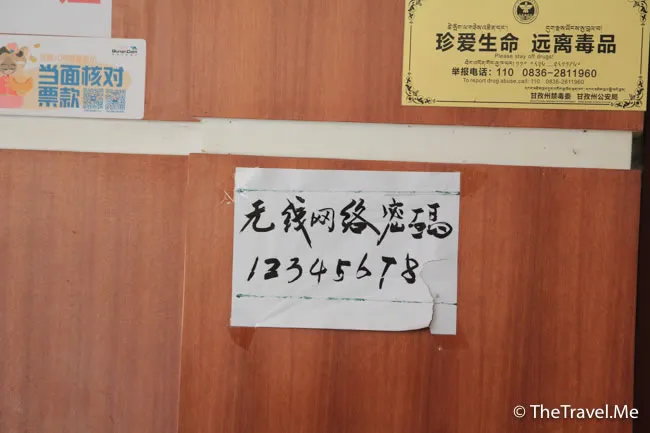 当面核对
票款
珍爱生命 远离毒品
Please stay off drugs!
举报电话：110 0836-2811960
To report drug abuse,call: 110 0836-2811960
甘孜州禁毒委 甘孜州公安局
无线网络密码
12345678
© TheTravel.Me